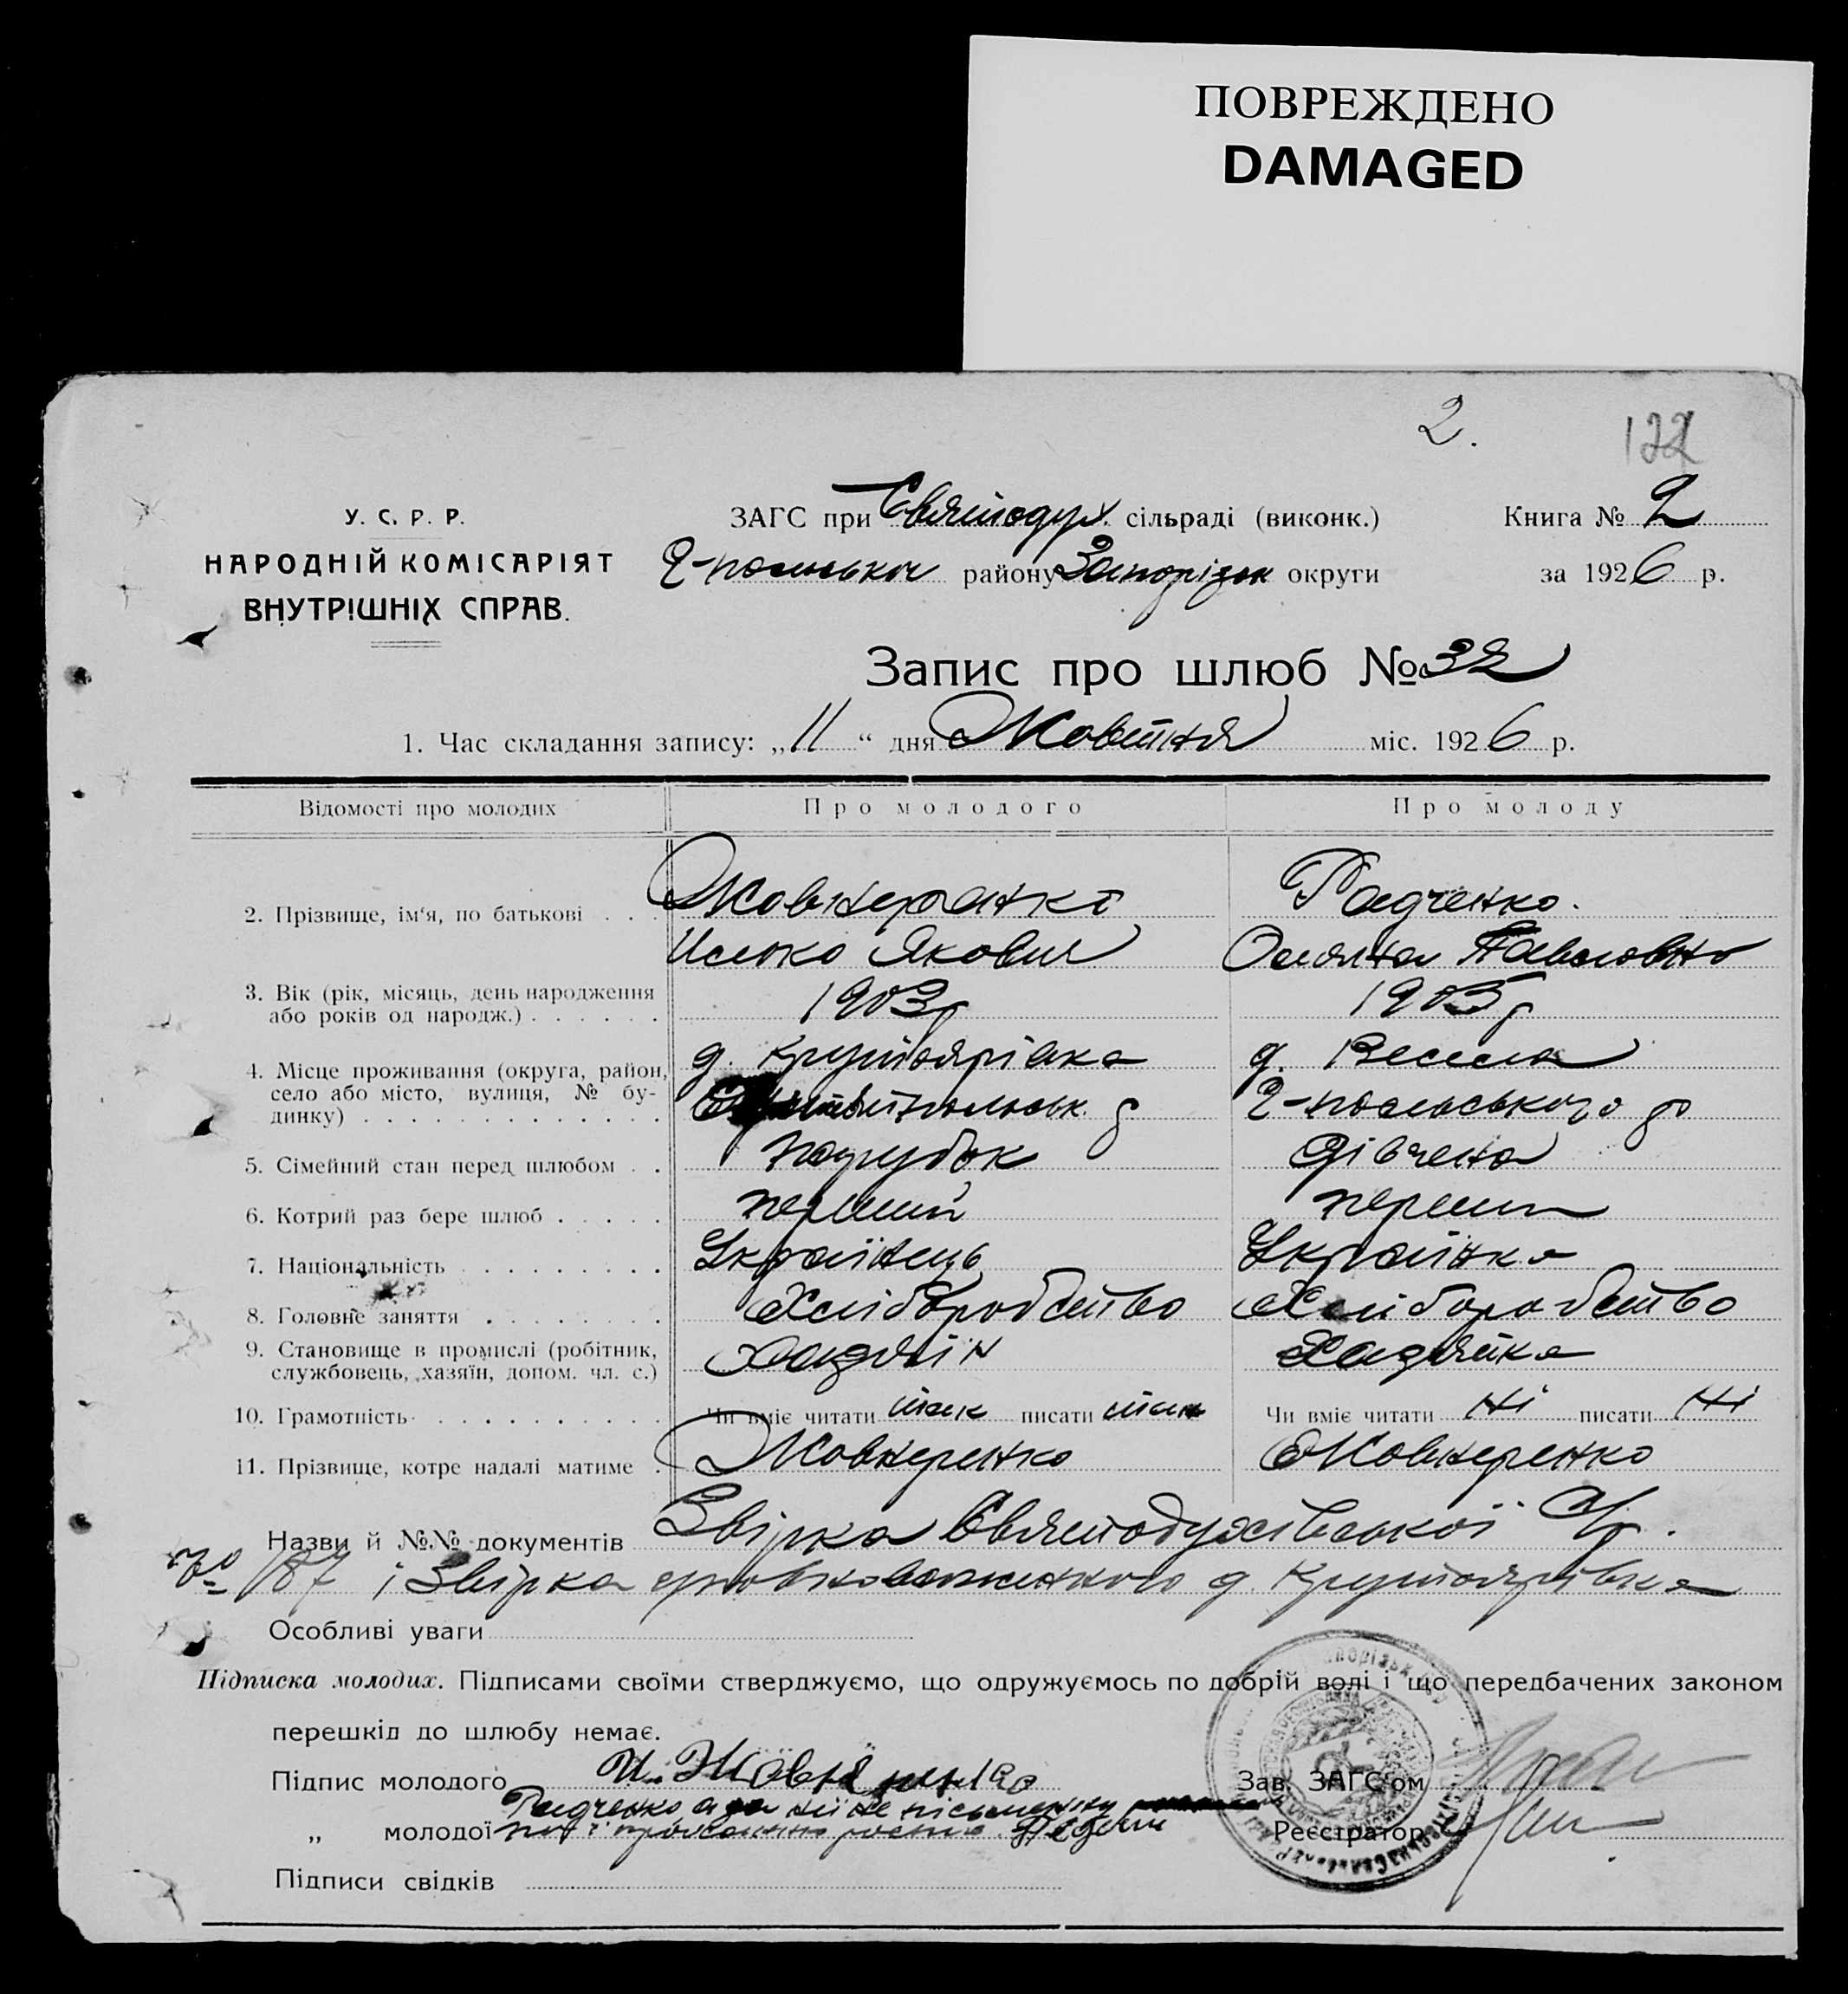 ПОВРЕЖДЕНО
DAMAGED
2.
122
У. С. Р. Р.
НАРОДНІЙ КОМІСАРІЯТ
ВНУТРІШНІХ СПРАВ.
ЗАГС при Святодух. сільраді (виконк.)
району Запорізьк округи
Книга № 2
за 1926 р.
Запис про шлюб № 32
1. Час складання запису: „11“ дня Жовтня міс. 1926 р.
Відомості про молодих
Про молодого
Про молоду
2. Прізвище, ім‘я, по батькові . . .
Радченко.
Якович
Павловна
3. Вік (рік, місяць, день народження
або років од народж.) . . . . . .
1903 р
1905 р
4. Місце проживання (округа, район,
село або місто, вулиця, № бу-
динку) . . . . . . . . . . . . .
д. Крутоярівка
д. Весела
5. Сімейний стан перед шлюбом . .
парубок
дівчена
6. Котрий раз бере шлюб . . . . .
перший
перший
7. Національність . . . . . . . . .
Українець
Українка
8. Головне заняття . . . . . . . .
Хліборобство
Хліборобство
9. Становище в промислі (робітник,
службовець, хазяїн, допом. чл. с.)
Хазяїн
Хазяйка
10. Грамотність . . . . . . . . . . .
Чи вміє читати так писати так
Чи вміє читати Ні писати Ні
11. Прізвище, котре надалі матиме .
Жовнеренко
Жовнеренко
Назви й №№ документів Звірка Святодухівської
№ 187 і Звірка д. Крутоярівка
Особливі уваги
Підписка молодих. Підписами своїми стверджуємо, що одружуємось по добрій волі і що передбачених законом
перешкід до шлюбу немає.
Підпис молодого
Радченко а за неї не письменну
„ молодої
Зав. ЗАГС‘ом
Реєстратор
Підписи свідків